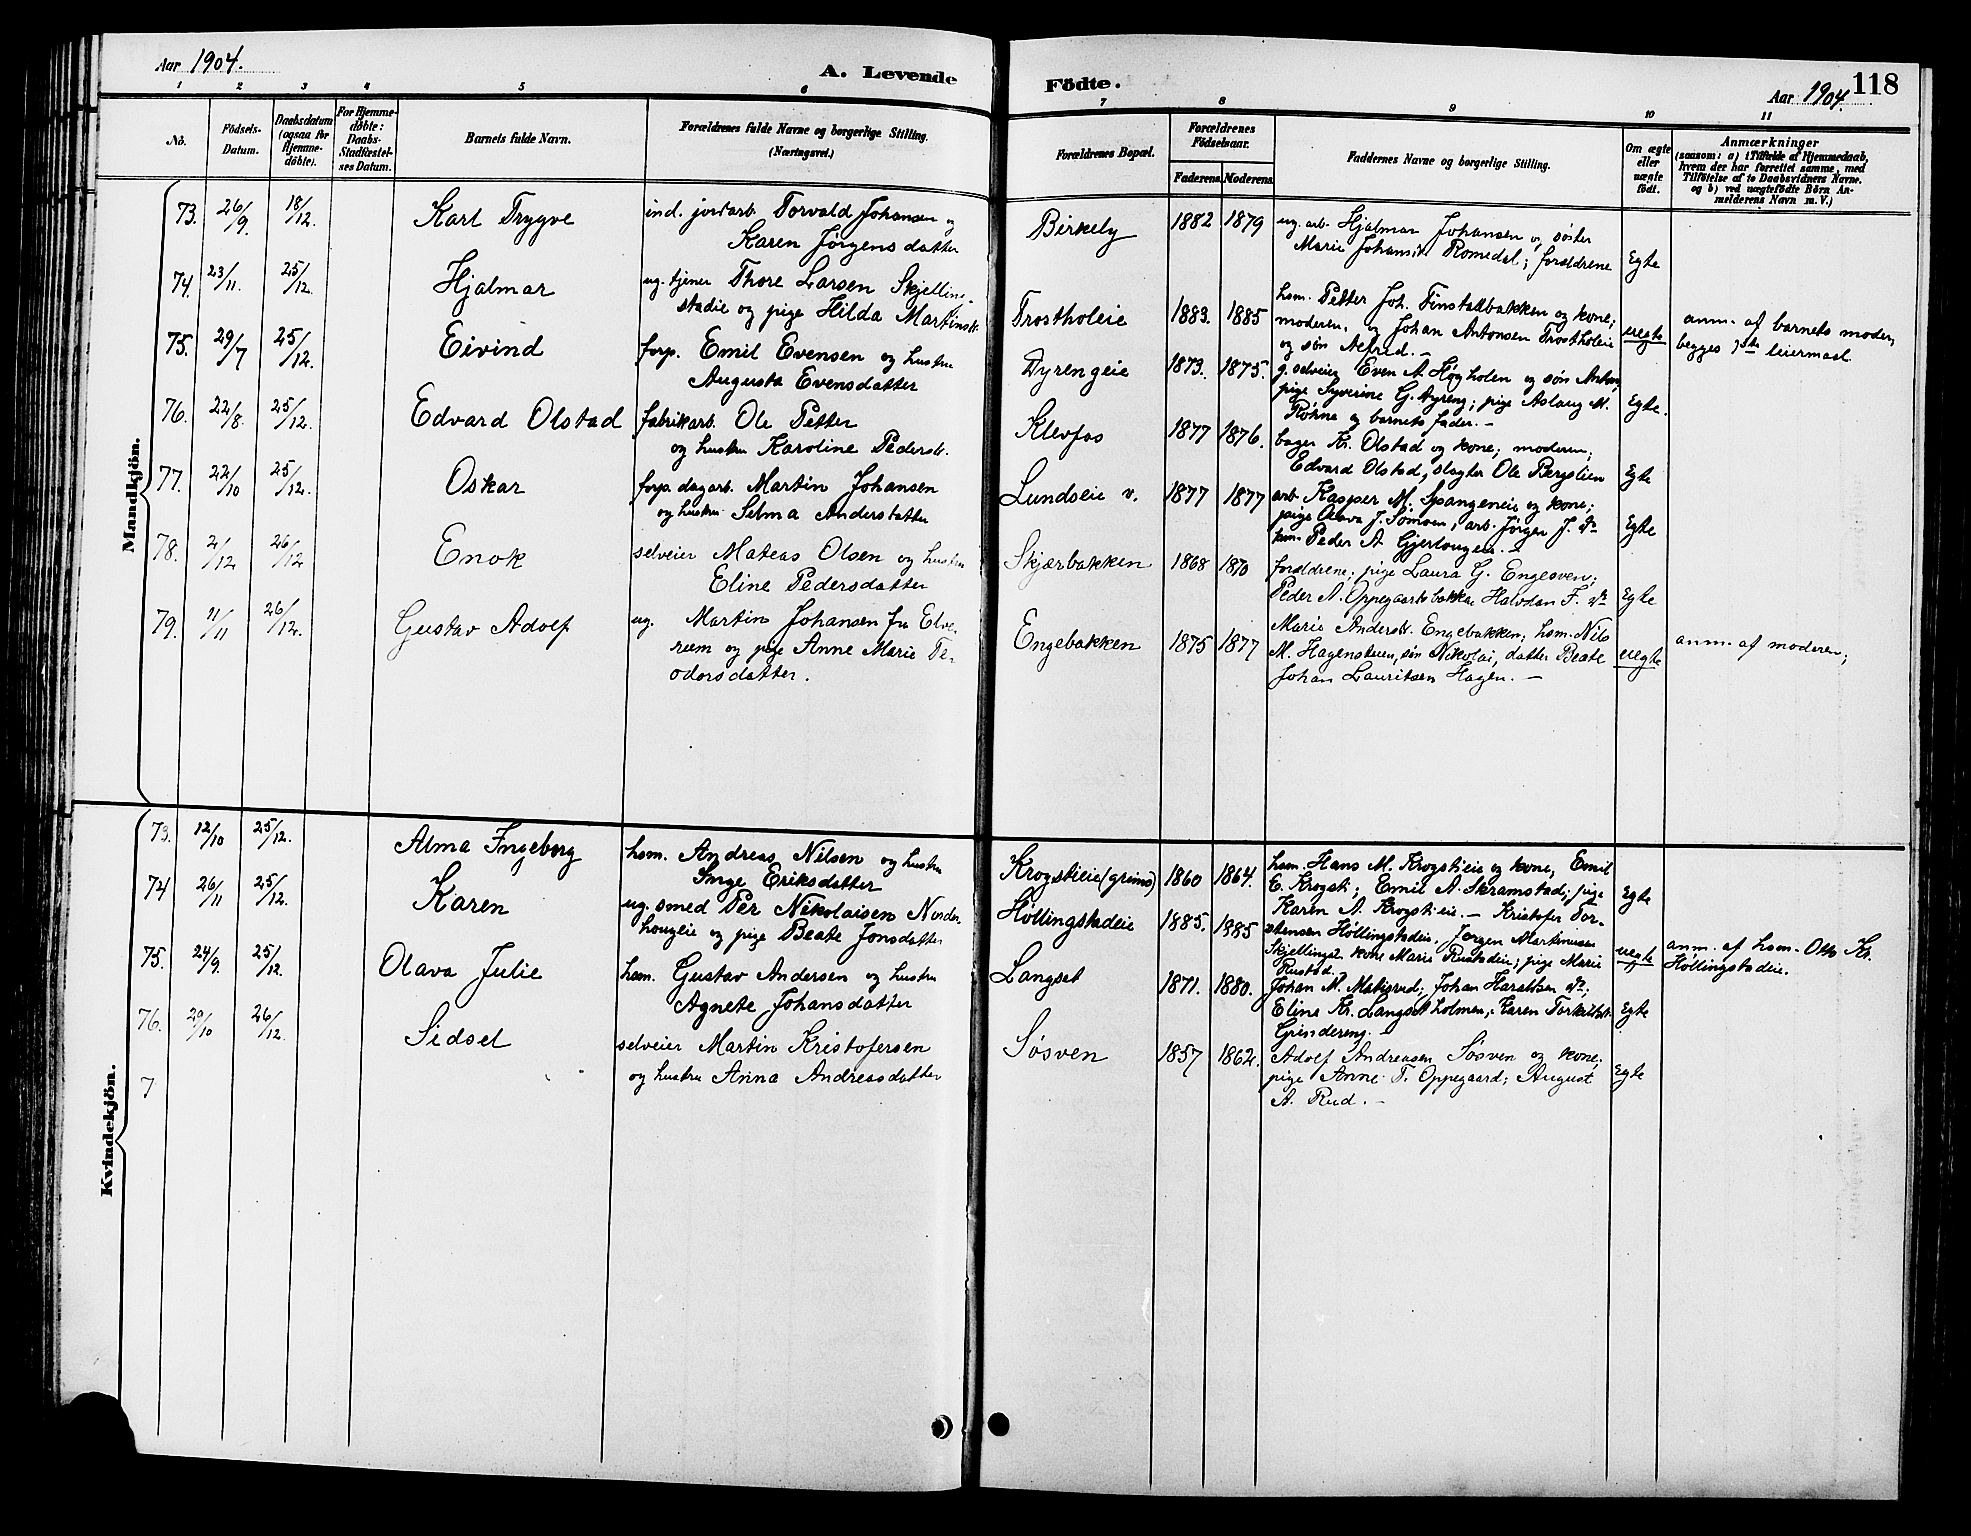 Aar 1904.
A. Levende
1 2 3 4 5 6
No.
Födsels-Datum.
Daabsdatum (ogsaa for Hjemme-döbte).
For Hjemme-döbte: Daabs-Stadfæstel-ses Datum.
Barnets fulde Navn.
Forældrenes fulde Navne og borgerlige Stilling.
(Næringsvei.)
Mandkjön.
73. 26/9. 18/12. Karl Trygve ind. jordarb. Torvald Johansen og
Karen Jørgensdatter
74. 23/11. 25/12. Hjalmar ug. tjener Thore Larsen Skjelling-
stadie og pige Hilda Martinsd.
75. 29/7 25/12. Eivind forp. Emil Evensen og hustru
Augusta Evensdatter
76. 22/8. 25/12. Edvard Olstad fabrikarb. Ole Petter
og hustru Karoline Pedersd.
77. 22/10 25/12. Oskar forp. dagarb. Martin Johansen
og hustru Selma Andersdatter
78. 2/12 26/12 Enok selveier Mateas Olsen og hustru
Eline Pedersdatter
79. 11/11 26/12. Gustav Adolf ug. Martin Johansen fra Elve-
rum og pige Anne Marie Te-
odorsdatter.
Kvindekjön.
73. 12/10 25/12. Alma Ingeborg hsm. Andreas Nilsen og hustru
Inge Eriksdatter
74 26/11 25/12. Karen ug. smed Per Nikolaisen Nordre
hougeie og pige Beate Jonsdatter
75. 24/9. 25/12. Olava Julie hsm. Gustav Andersen og hustru
Agnete Johansdatter
76. 20/10 26/12. Sidsel selveier Martin Kristofersen
og hustru Anna Andreasdatter
7
Födte.
Aar 1904.
118
7 8 9 10 11
Forældrenes Bopæl.
Forældrenes Födselsaar.
Faderens. Moderens.
Faddernes Navne og borgerlige Stilling.
Om ægte eller uægte födt.
Anmærkninger
(saasom: a) i Tilfælde af Hjemmedaab,
hvem der har forrettet samme, med
Tilföielse af to Daabsvidners Navne.
og b) ved uægtefödte Börn An-
melderens Navn m. V.)
Birkely 1882 1879 ug. arb. Hjalmar Johansen og søster
Marie Johansen Romedal; forældrene Egte
Trostholeie 1883. 1885 hsm. Petter Joh. Finstadbakken og kone;
moderen. og Johan Antonsen Trostholeie uegte
og søn Alfred. —
anm. af barnets moder,
begges 1ste leiermaal
Dyrengeie 1873. 1875. g. selveier Even A. Høgholen og søn Anton,
pige Syverine G. Dyreng; pige Aslaug M. Egte.
og barnets fader. —
Klevfos 1877 1876. bager Kr. Olstad og kone; moderen;
Edvard Olstad, slagter Ole Bergslien Egte
Lundseie v. 1877 1877 arb. Kasper M. Spangeneie og kone;
pige Olava J. Somoen; arb. Jørgen J. do Egte
hsm. Peder A. Gjerlougen. —
Skjærbakken 1868 1870 forældrene; pige Laura G. Engesven;
Peder A. Oppegaardsbakke Halvdan F. do Egte
Engebakken 1875 1877 Marie Andersd. Engebakken; hsm. Nils
M. Hagensteien, søn Nikolai, datter Beate uegte
Johan Lauritsen Hagen. —
anm. af moderen;
Krogstieie (grims) 1860 1864. hsm. Hans M. Krogstieie og kone, Emil
E. Krogsti; Emil A. Skramstad; pige Egte
Karen A. Krogstieie. —
Höllingstadeie 1885. 1885 Kristofer Tor-
stensen Höllingstadeie. Jørgen Martinusen
Skjellingst. kone Marie Rustadeie; pige Marie uegte
Rustad.
anm. af hsm. Otto Kr.
Höllingstadeie.
Langset 1871. 1880. Johan M. Matisrud; Johan Haraldsen do;
Eline Kr. Langsetholmen, Karen Torkildsd. Egte
Grindereng. —
Søsven 1857 1862. Adolf Andreasen Søsven og kone;
pige Anne T. Oppegaard; August Egte
A. Rud. —